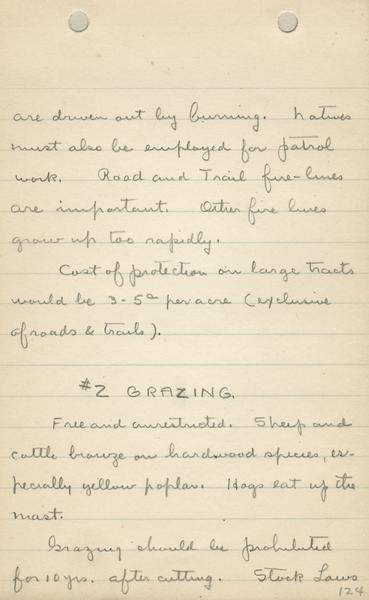 are driven out by burning. Natives
must also be employed for patrol
work. Road and Trail fire-lines
are important. Other fire lines
grow up too rapidly.
Cost of protection on large tracts
would be 3-5¢ per acre (exclusive
of roads & trails).
#2 GRAZING.
Free and unrestricted. Sheep and
cattle browze on hardwood species, es-
pecially yellow poplar. Hogs eat up the
mast.
Grazing should be prohibited
for 10 yrs. after cutting. Stock Laws
124